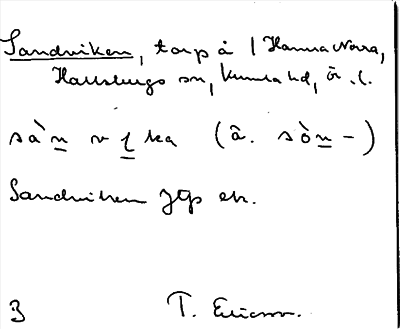 Sandviken, torp å 1 Hamra Norra,
Hallsbergs sn, Kumla hd, Ö.l.
sàn v i ka (ä. sòn-)
Sandviken Jfp ek.
3 T. Ericsson.